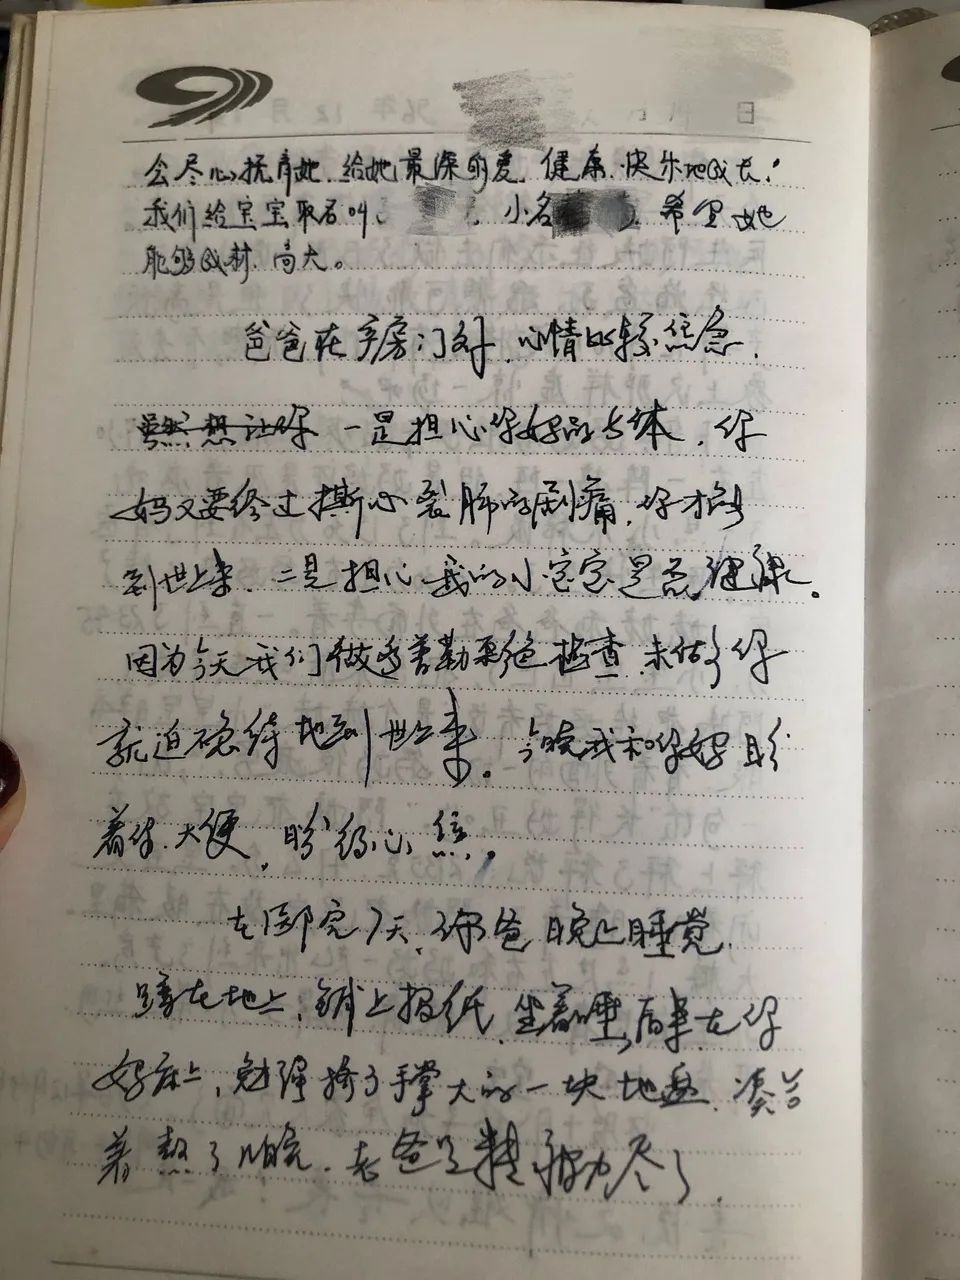 会尽心抚育她、给她最深的爱、健康、快乐地成长!
我们给宝宝取名叫、小名 希望她
能够成材、高大。
爸爸在产房门外,心情比较焦急,
虽然想让你 一是担心你妈的身体,你
妈又要经过撕心裂肺的剧痛,你才能
到世上来,二是担心我的小宝宝是否健康。
因为今天我们做 检查,未做了你
就迫不急待地到世上来。今晚我和你妈盼
着你大便,盼得心焦。
在医院7天,你爸晚上睡觉
蹲在地上,铺上报纸,坐着睡,后来在你
妈床上,勉强挤了手掌大的一块地盘,凑合
着熬了几晚,老爸是精疲力尽了,